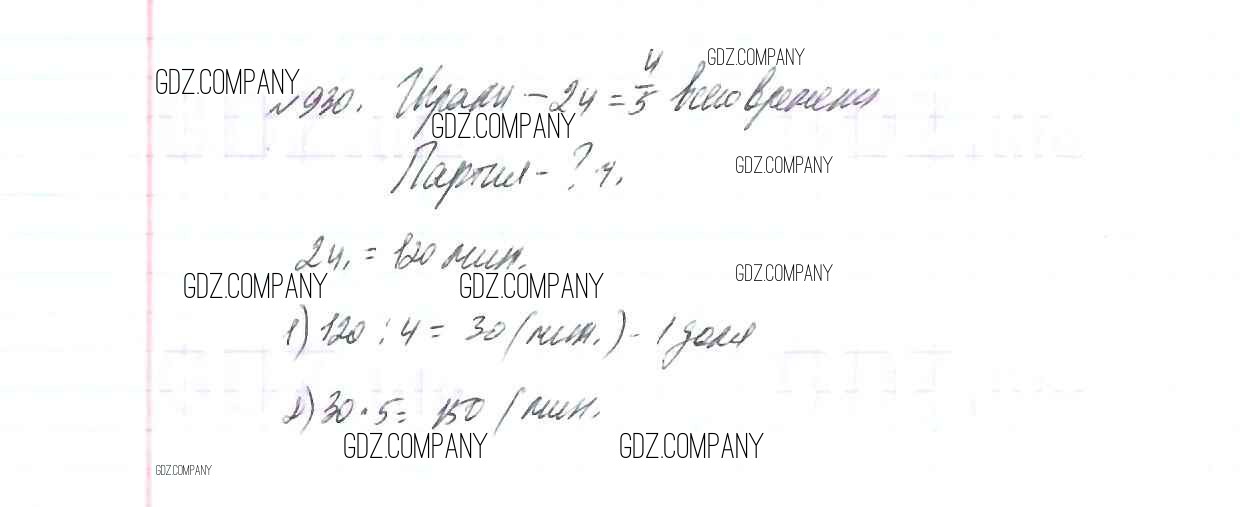 GDZ.COMPANY
GDZ.COMPANY
№930. Играли – 2ч = 4/5 всего времени
GDZ.COMPANY
Партия – ? ч.
GDZ.COMPANY
2ч. = 120 мин.
GDZ.COMPANY
GDZ.COMPANY
GDZ.COMPANY
1) 120 : 4 = 30 (мин.) - 1 доля
2) 30 · 5 = 150 (мин.
GDZ.COMPANY
GDZ.COMPANY
GDZ.COMPANY